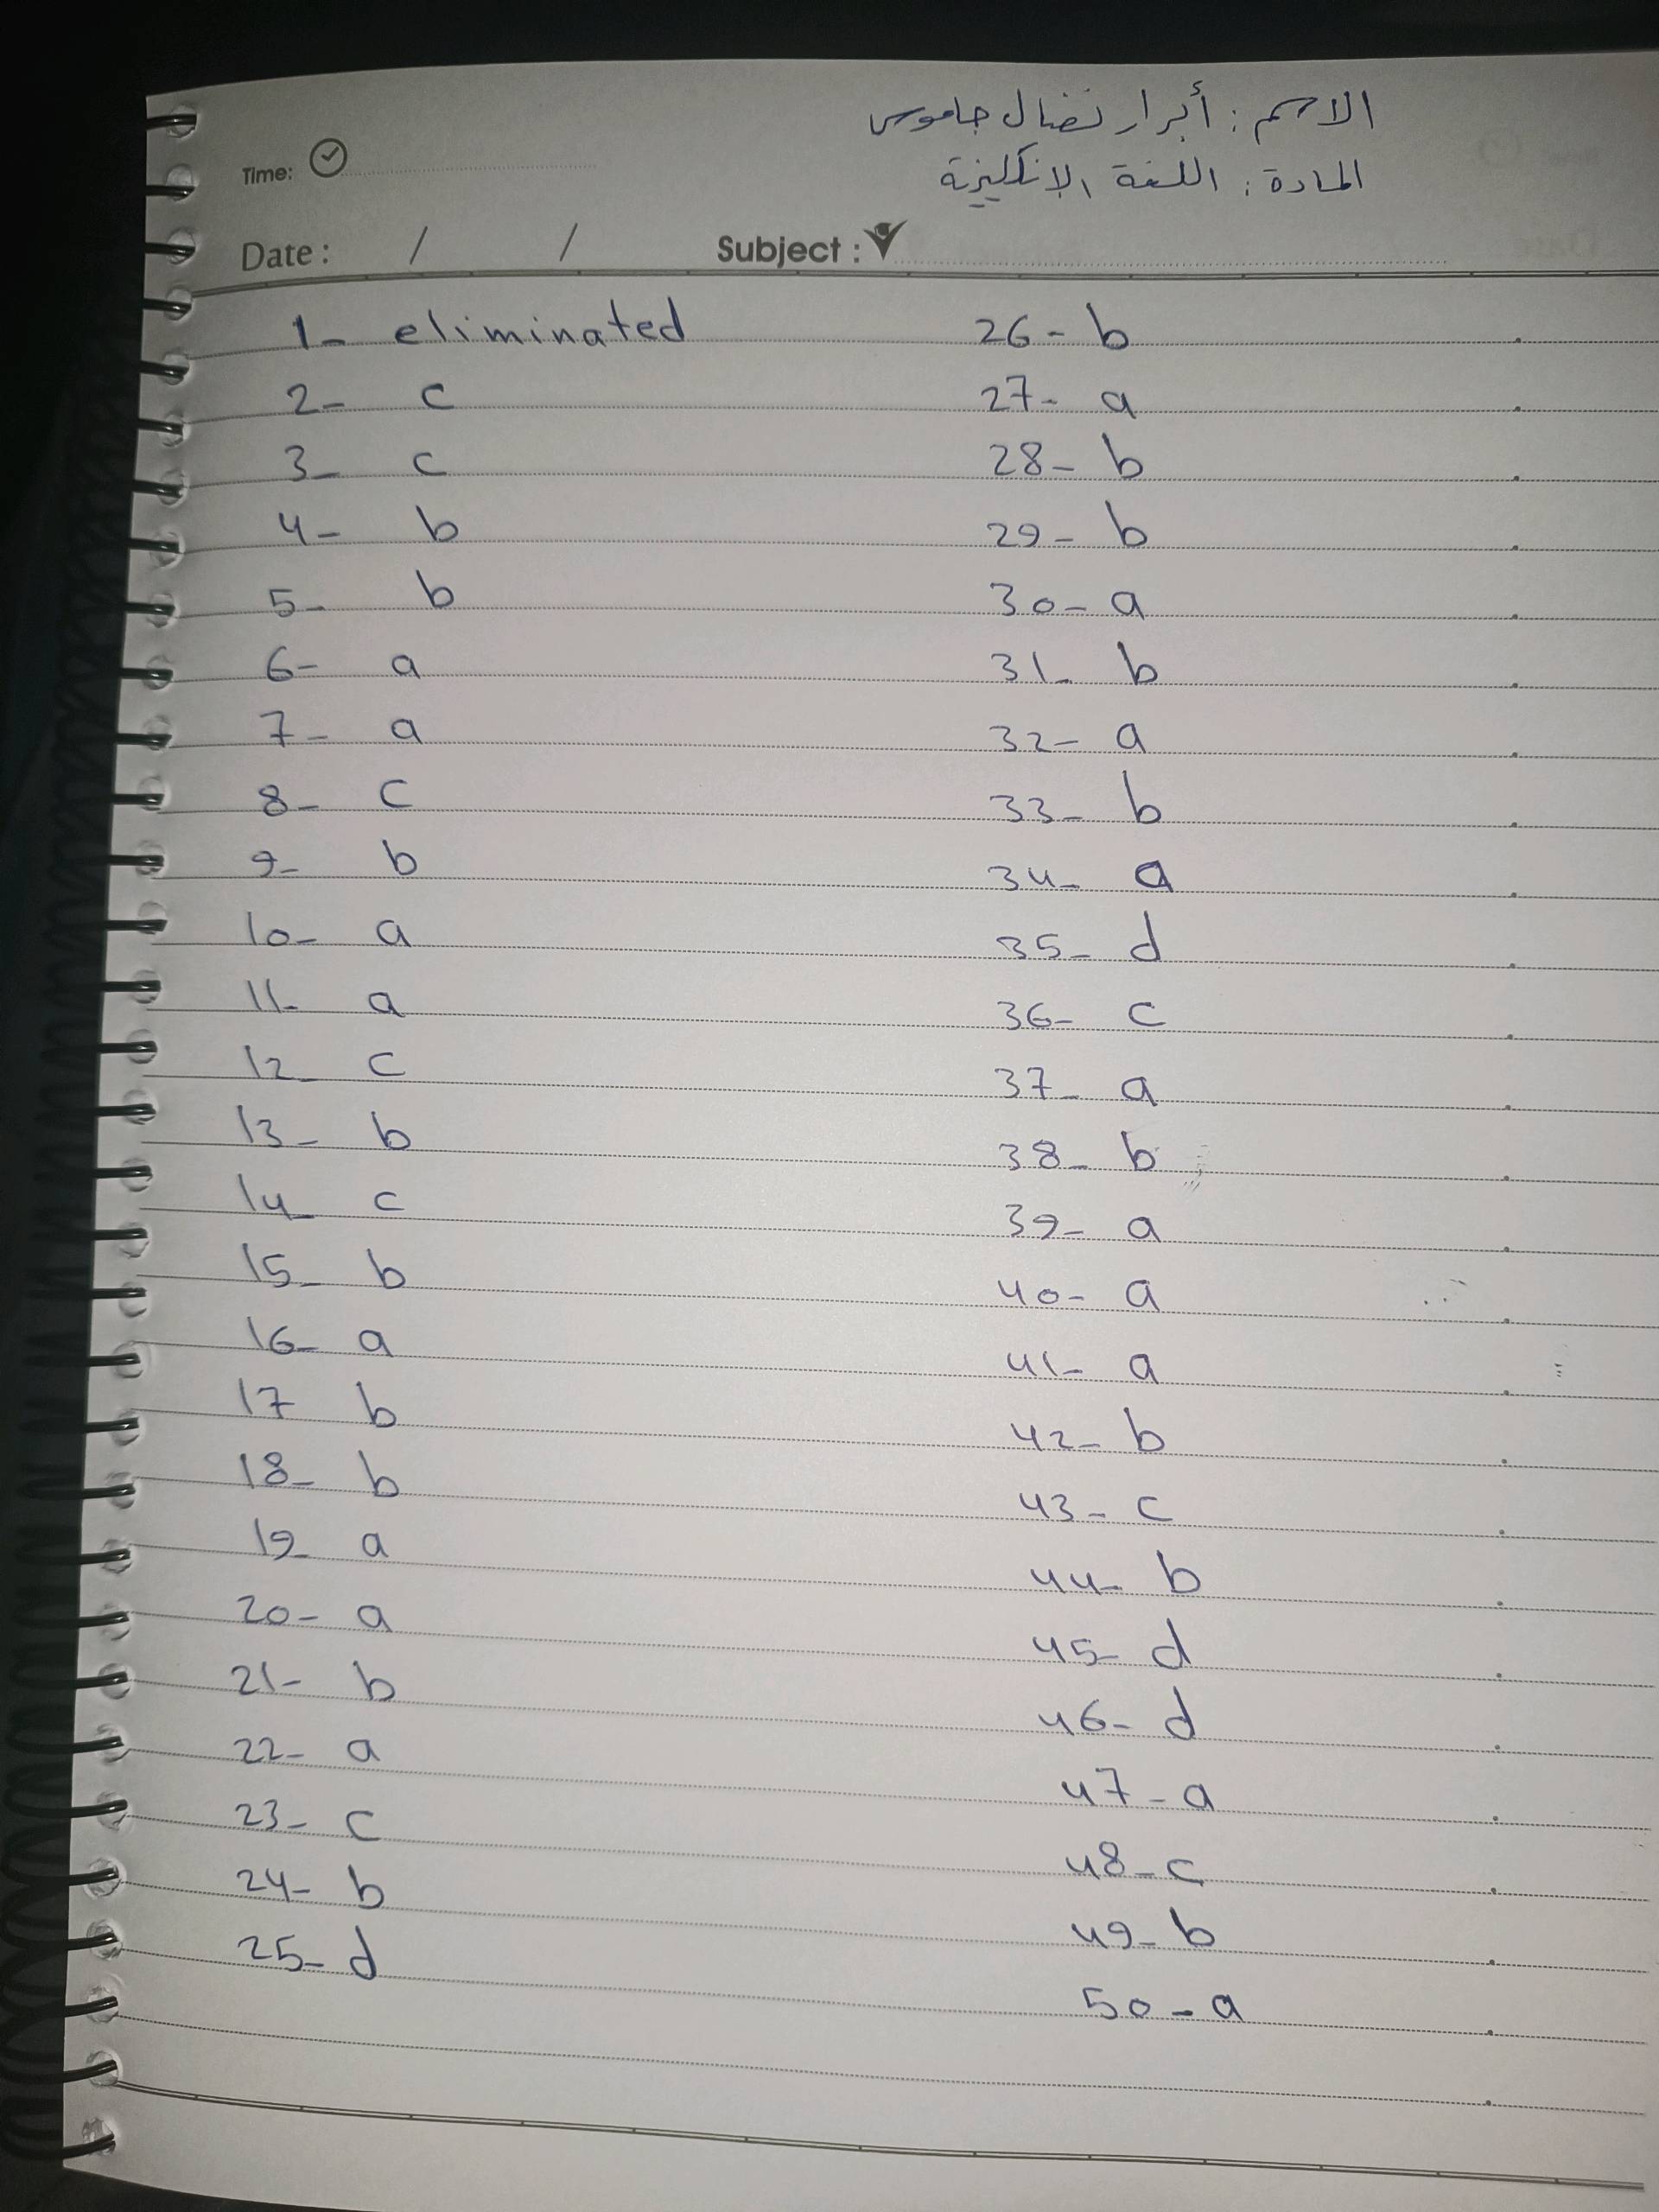 الاسم : أبرار نضال جاموس
المادة : اللغة الإنكليزية
Time:
Date: / / Subject:
1- eliminated
2- c
3- c
4- b
5- b
6- a
7- a
8- c
9- b
10- a
11- a
12- c
13- b
14- c
15- b
16- a
17 b
18- b
19- a
20- a
21- b
22- a
23- c
24- b
25- d
26- b
27- a
28- b
29- b
30- a
31- b
32- a
33- b
34- a
35- d
36- c
37- a
38- b
39- a
40- a
41- a
42- b
43- c
44- b
45- d
46- d
47- a
48- c
49- b
50- a